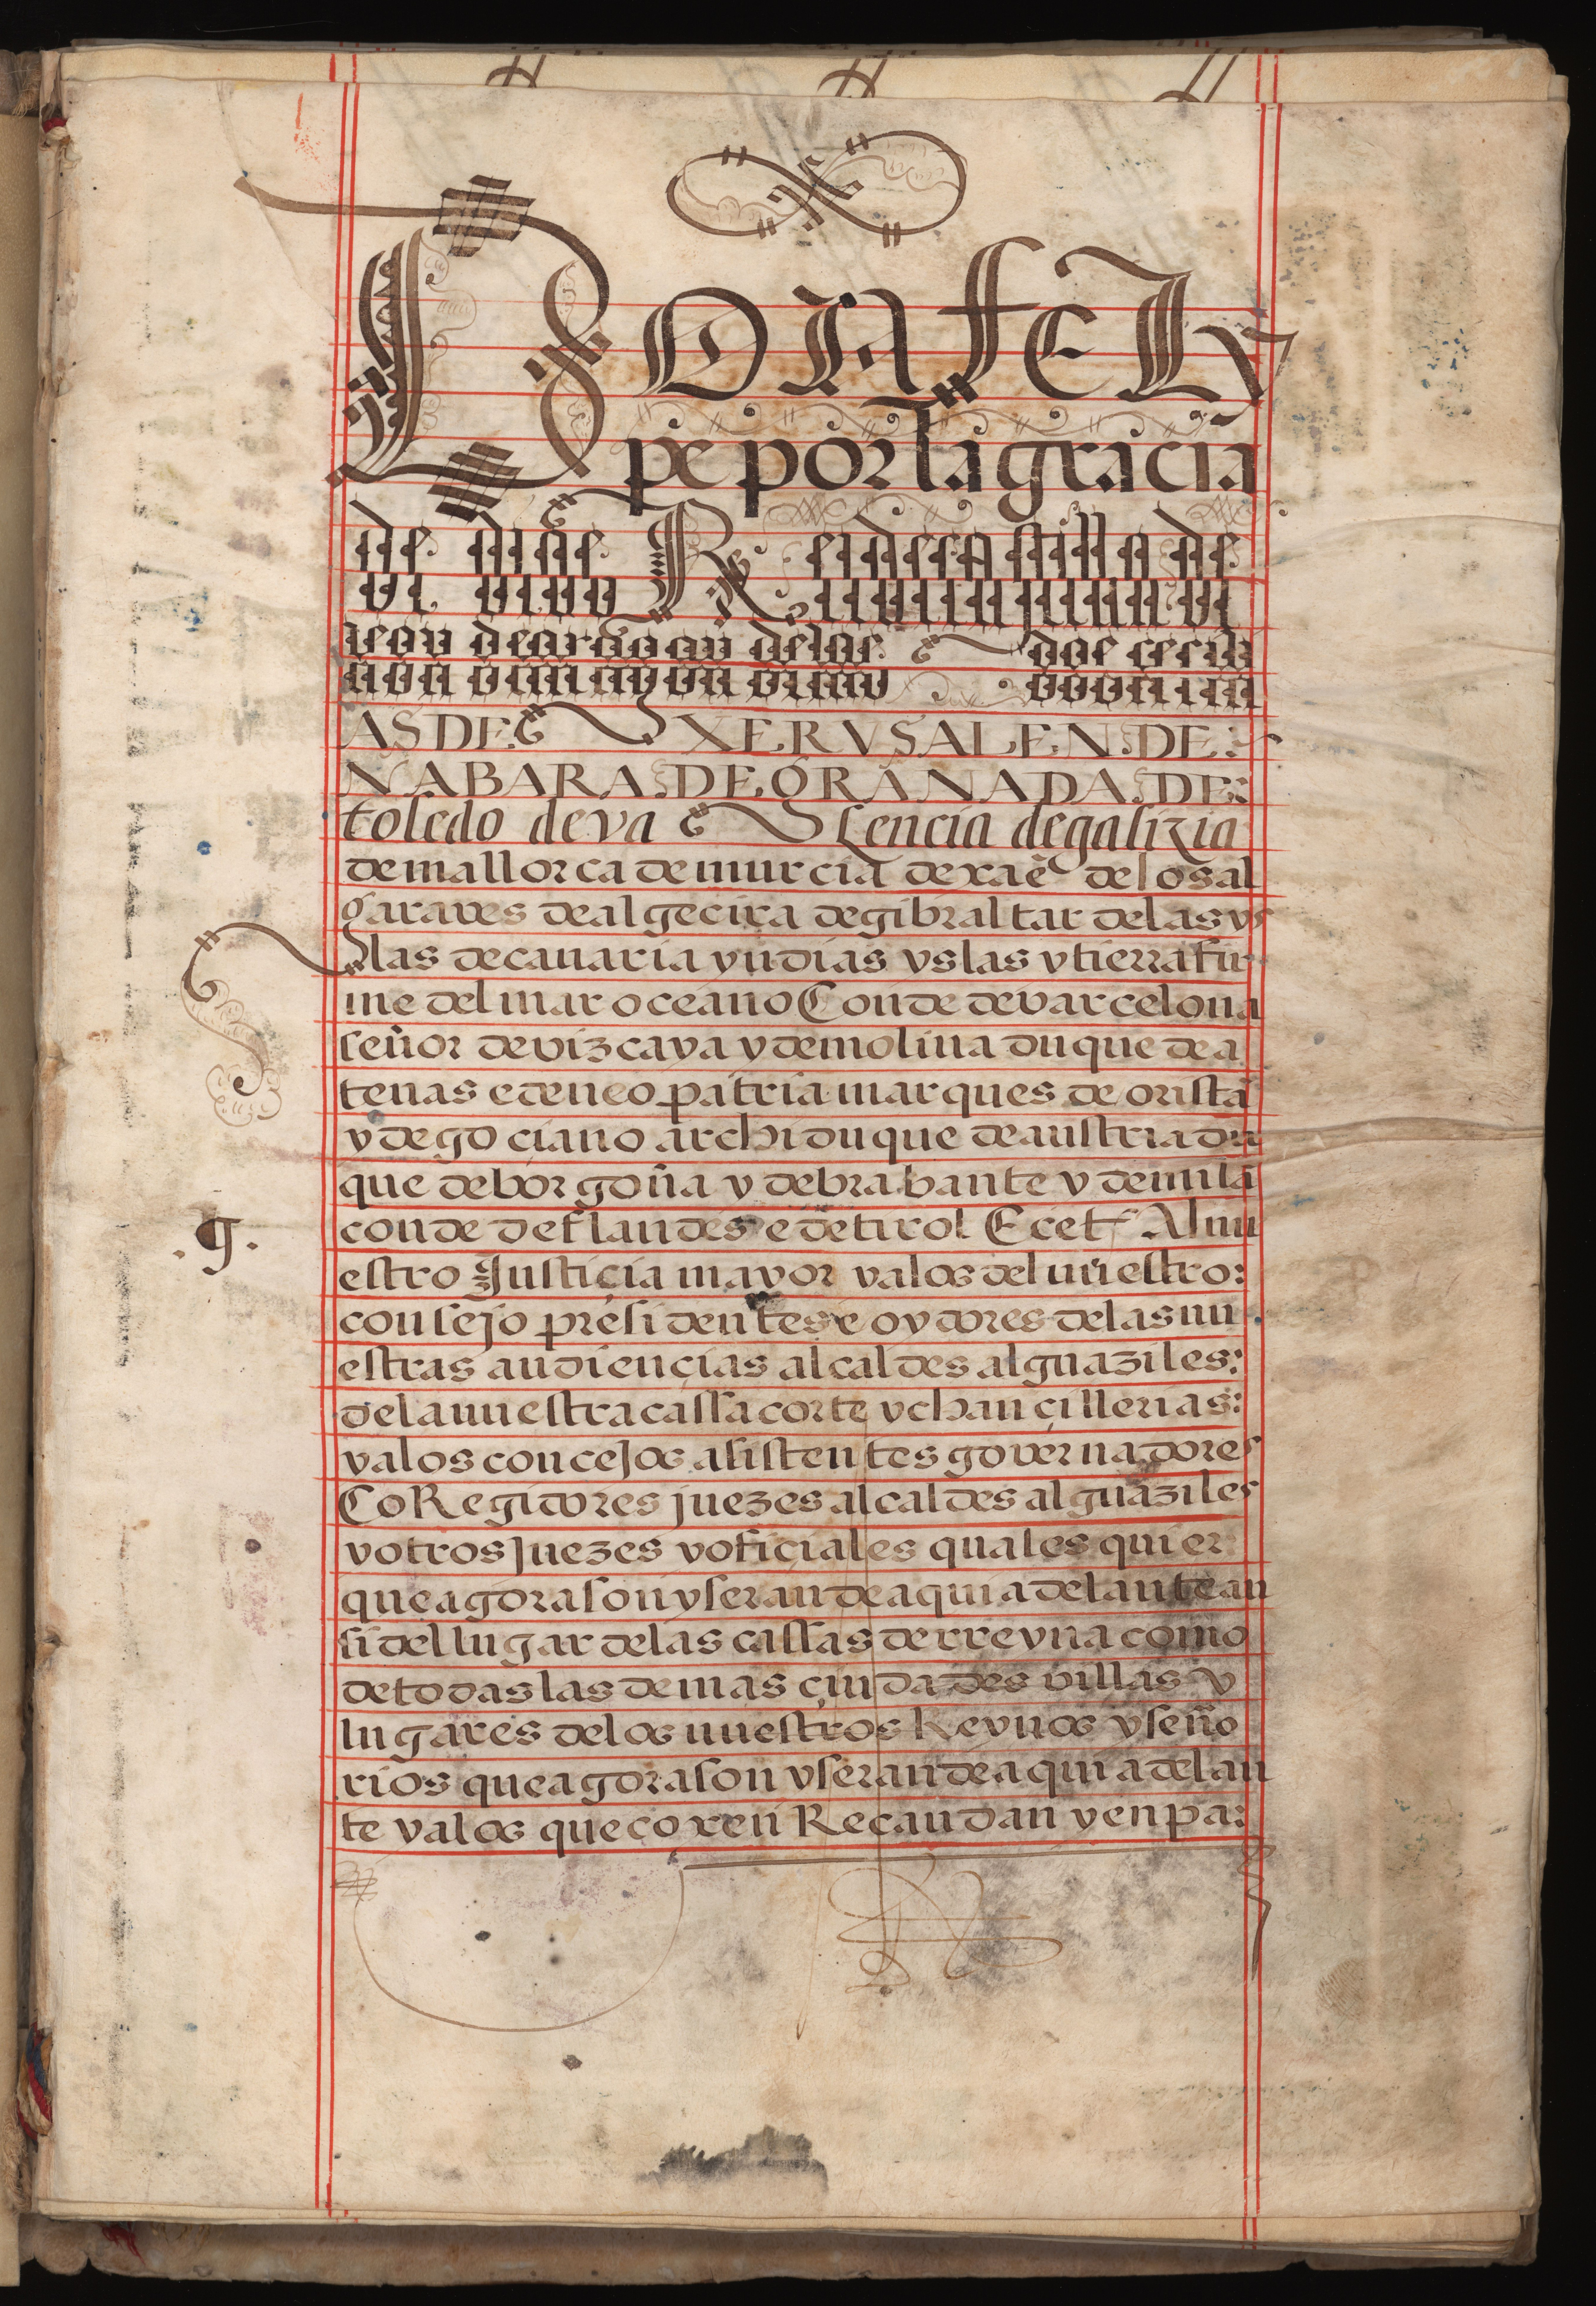 DON FELi
pe por la gracia
de dios Rei de castilla de
leon de aragon de las dos cecili
AS DE XERVSALEN DE
NABARA DE GRANADA DE
toledo de va lencia de galizia
de mallorca de murcia de xaē de los al
garaves de algecira de gibraltar de las ys
las de canaria yndias yslas y tierra fir
me del mar oceano Conde de varcelona
señor de vizcaya y de molina duque de a
tenas e de neopatria marques de oristā
y de gociano archiduque de austria du
que de borgoña y de brabante y de milā
conde de flandes e de tirol Ecet. Al nu
.g.
estro Justicia mayor y a los del nuestro:
consejo presidentes e oydores de las nu
estras audiencias alcaldes alguaziles:
de la nuestra cassa corte y chancillerias:
y a los concejos asistentes governadores
CoRegidores juezes alcaldes alguaziles
y otros juezes y oficiales quales quier
que agora son y seran de aqui adelante an
si del lugar de las cassas de rreyna como
de todas las demas ciudades villas y
lugares de los nuestros Reynos y seño
rios que agora son y seran de aqui adelan
te y a los que coxen Recaudan y en pa: